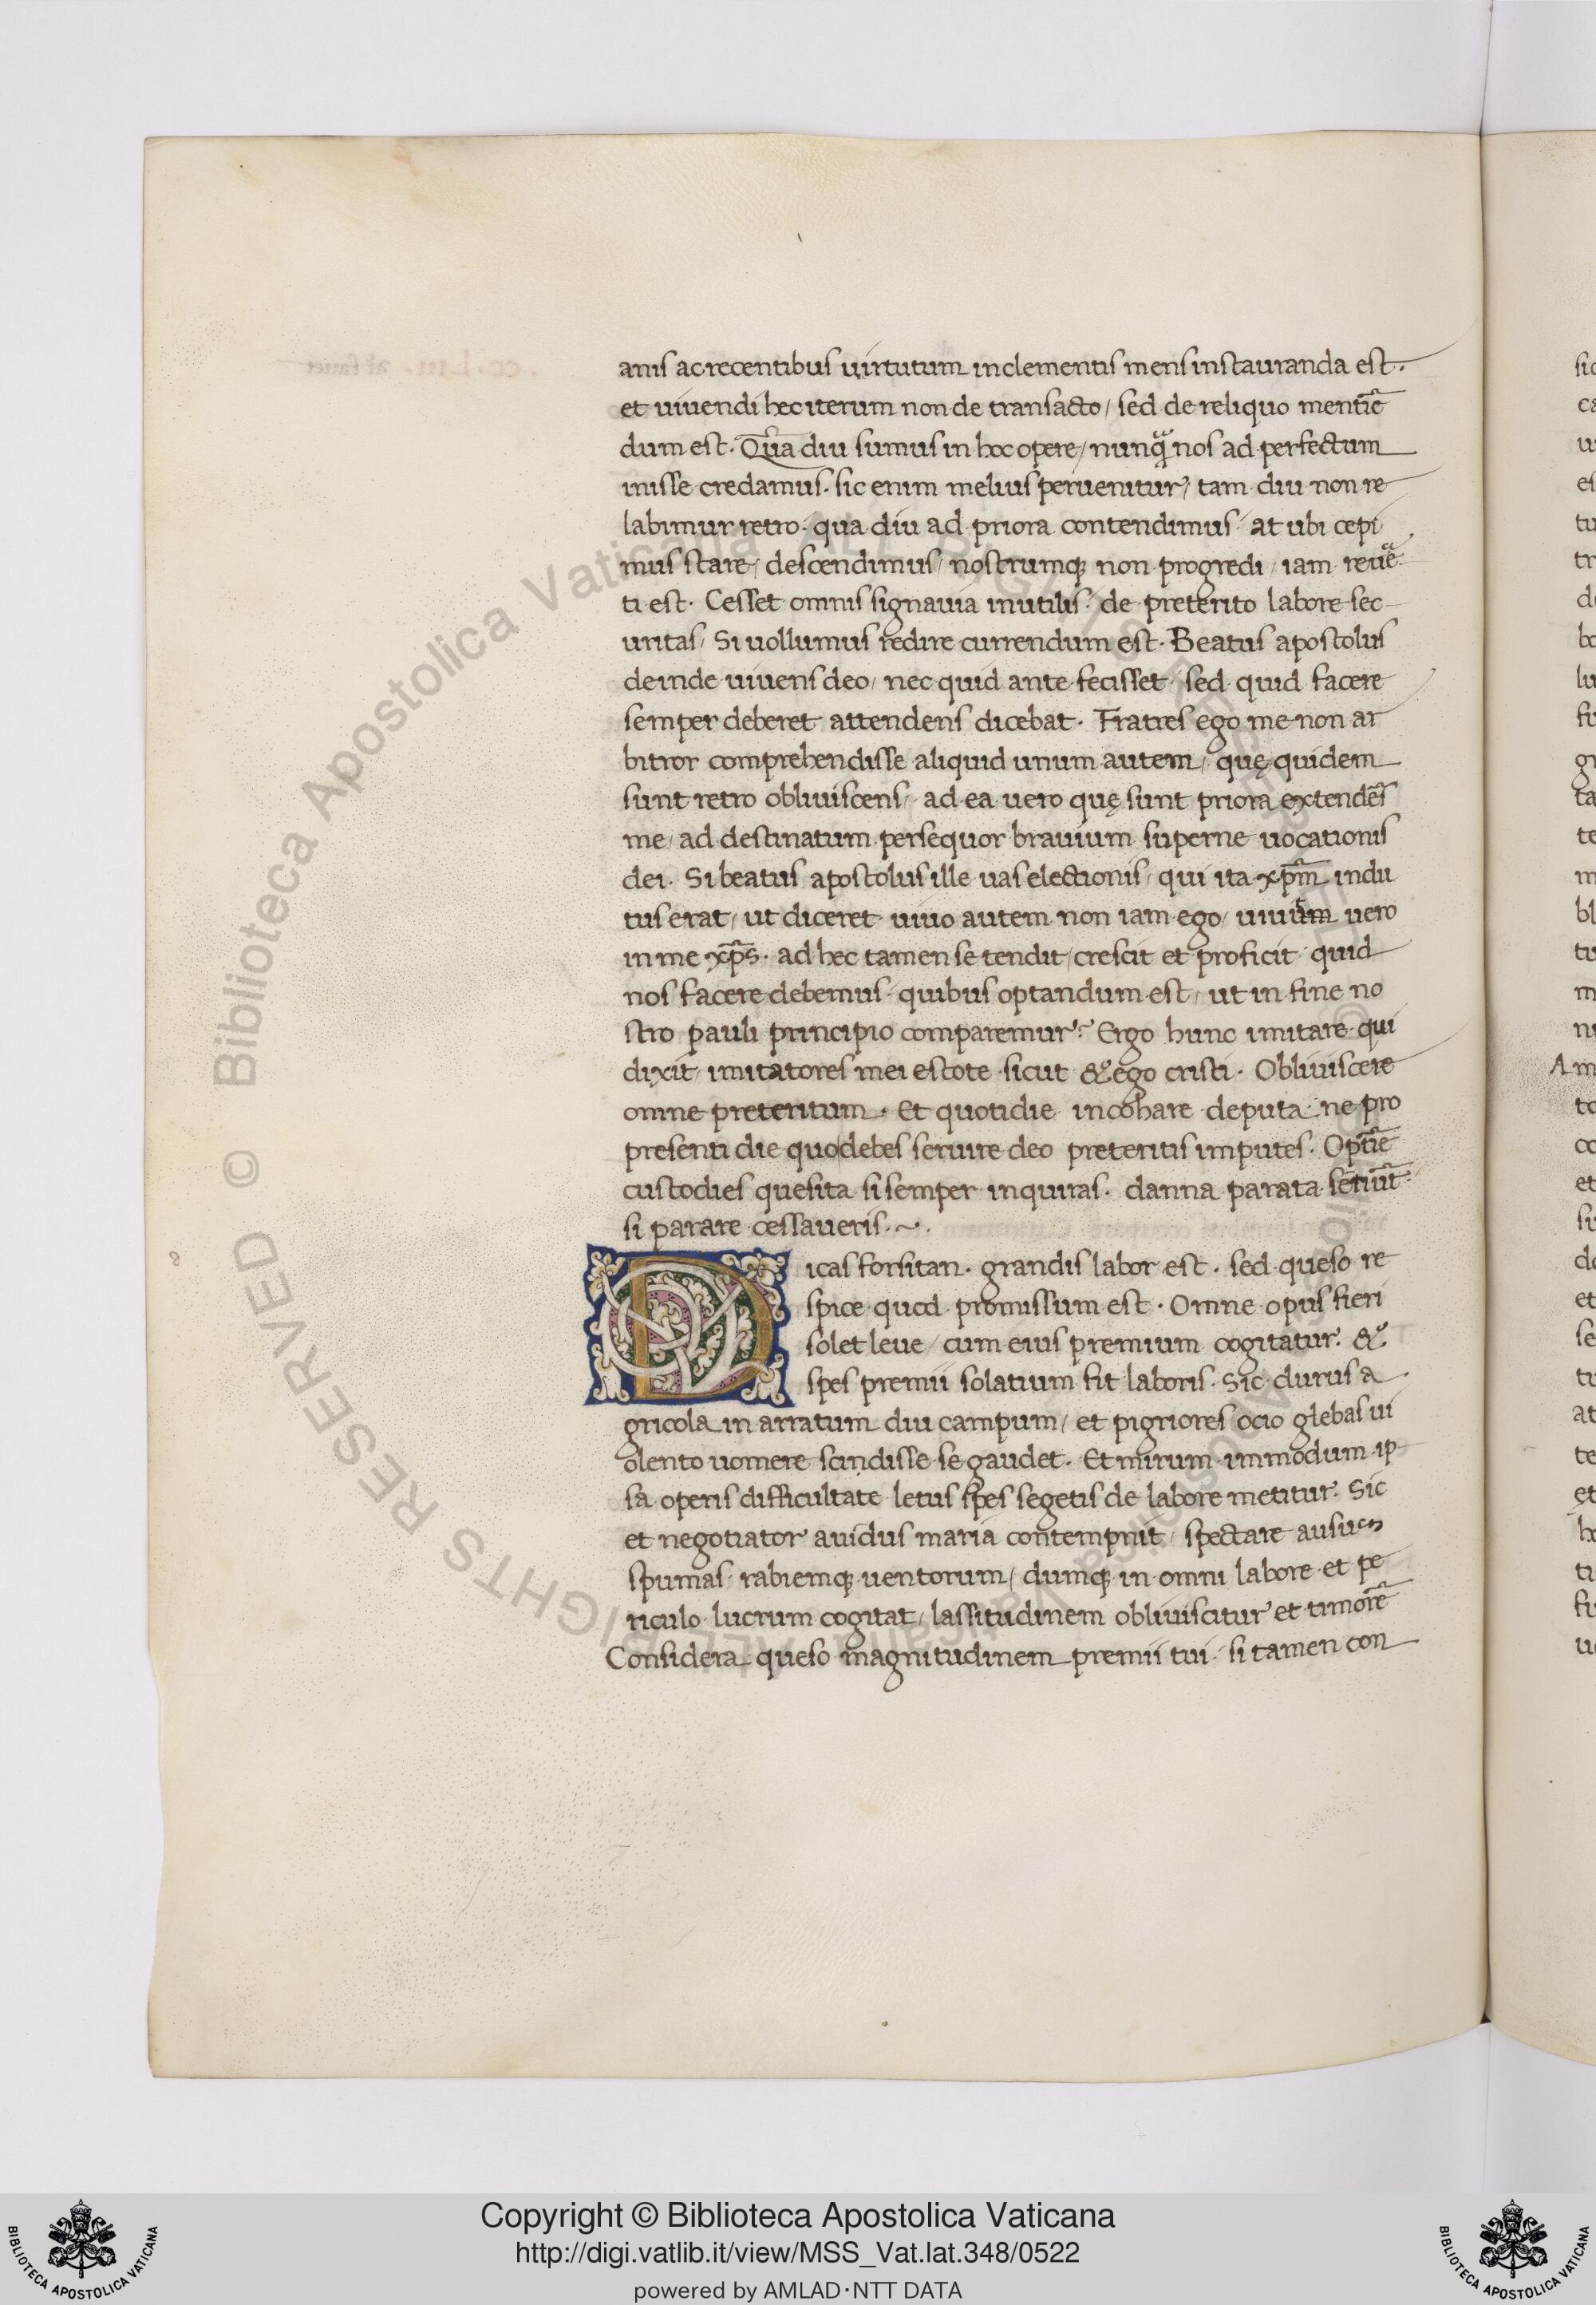 anis ac recentibus uirtutum inclementis mens instauranda est.
et uiuendi hec iterum non de transacto / sed de reliquo mentiē
dum est. Quādiu sumus in hoc opere / nunqᷓ nos ad perfectum
inisse credamus. sic enim melius peruenitur / tam diu non re
labimur retro. qua diu ad priora contendimus. at ubi cepi
mus stare / descendimus / nostrumqꝫ non progredi / iam reuē
ti est. Cesset omnis signauia inutilis. de preterito labore sec
uritas / Si uollumus redire currendum est. Beatus apostolus
deinde uiuens deo / nec quid ante fecisset / sed quid facere
semper deberet attendens dicebat. Fratres ego me non ar
bitror comprehendisse aliquid unum autem / quę quidem
sunt retro obliuiscens / ad ea uero quę sunt priora extendēs
me / ad destinatum persequor brauium superne uocationis
dei. Si beatus apostolus ille uas electionis / qui ita xp̄m indu
tus erat / ut diceret uiuo autem non iam ego / uero
in me xp̄s. ad hec tamen se tendit / crescit et proficit quid
nos facere debemus. quibus optandum est / ut in fine no
stro pauli principio comparemur? Ergo hunc imitare qui
dixit / imitatores mei estote sicut & ego cristi. Obliuiscere
omne preteritum. Et quotidie incohare deputa ne pro
presenti die quo debes seruire deo preteritis imputes. Optīe
custodies quesita si semper inquiras. danna parata
si parare cessaueris. ~.
Dicas forsitan. grandis labor est. sed queso re
spice quod promissum est. Omne opus fieri
solet leue / cum eius premium cogitatur. &
spes premii solatium fit laboris. Sic durus a
gricola in arratum diu campum / et pigriores ocio glebas ui
olento uomere scindisse se gaudet. Et mirum immodum ip
sa operis difficultate letus spes segetis de labore metitur. Sic
et negotiator auidus maria contempnit / spectare ausus
spumas / rabiemqꝫ uentorum / dumqꝫ in omni labore et pe
riculo lucrum cogitat / lassitudinem obliuiscitur et timorē
Considera queso magnitudinem premii tui. si tamen con
Copyright © Biblioteca Apostolica Vaticana
http://digi.vatlib.it/view/MSS_Vat.lat.348/0522
powered by AMLAD·NTT DATA
BIBLIOTECA APOSTOLICA VATICANA
BIBLIOTECA APOSTOLICA VATICANA
© Biblioteca Apostolica Vaticana ALL RIGHTS RESERVED